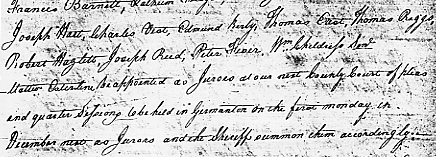 Francis Barnett,
Joseph Hart, Charles Vest, Edmund Kerby, Thomas East, Thomas Poggs,
Robert Hazlett, Joseph Reed, Peter Fever, Wm Childress Senr
be appointed as Jurors at our next County Court of pleas
and quarter Sessions to be held in Germanton on the first monday in
December next as Jurors and the Sheriff summon them accordingly.